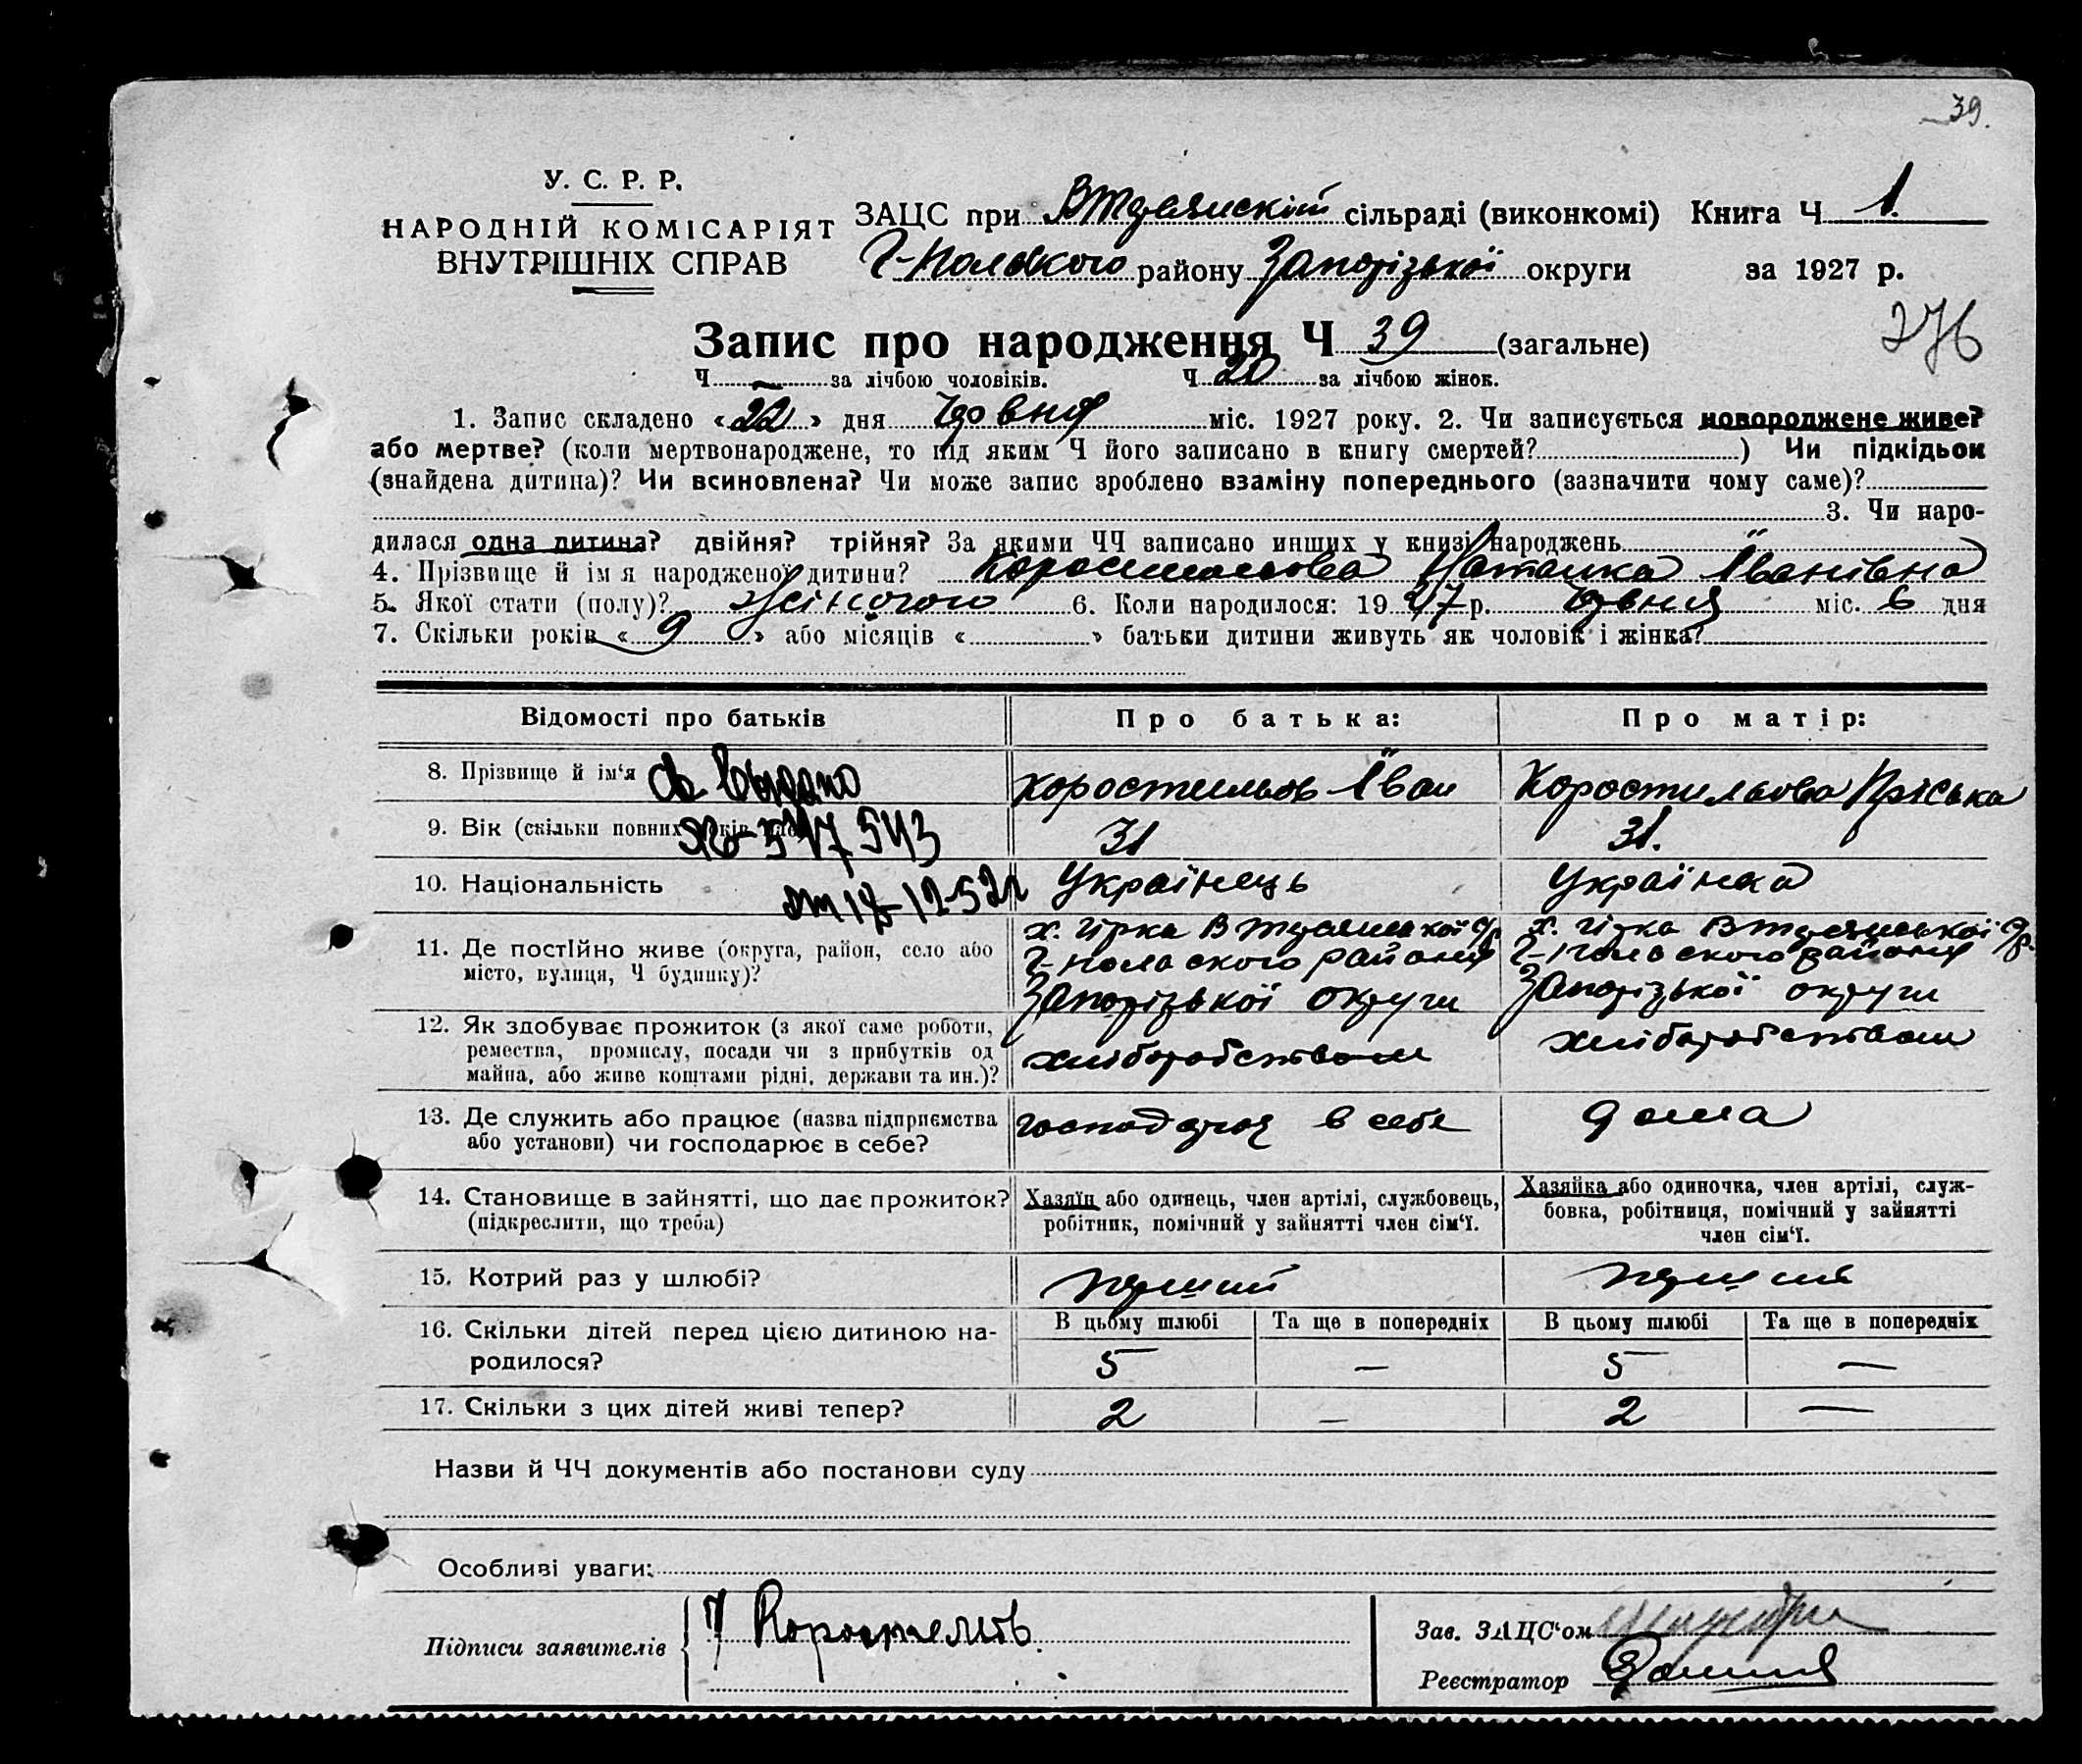 39.
У. С. Р. Р.
НАРОДНІЙ КОМІСАРІЯТ
ВНУТРІШНІХ СПРАВ
ЗАЦС при сільраді (виконкомі) Книга Ч 1.
Г-Польского району Запорізької округи за 1927 р.
276
Запис про народження Ч 39 (загальне)
Ч. – за лічбою чоловіків. Ч. 20 за лічбою жінок.
1. Запис складено «22» дня міс. 1927 року. 2. Чи записується новороджене живе?
або мертве? (коли мертвонароджене, то під яким Ч його записано в книгу смертей? ) Чи підкідьок
(знайдена дитина)? Чи всиновлена? Чи може запис зроблено взаміну попереднього (зазначити чому саме)?
3. Чи наро-
дилася одна дитина? двійня? трійня? За якими ЧЧ записано инших у книзі народжень
4. Прізвище й імя народженої дитини? Коростильова Наталка Іванівна
5. Якої стати (полу)? Жіночого 6. Коли народилося: 1927 р. міс. 6 дня
7. Скільки років «9» або місяців « » батьки дитини живуть як чоловік і жінка?
Відомості про батьків Про батька: Про матір:
8. Прізвище й ім'я св выдано Коростильов Іван Коростильова Пріська
9. Вік (скільки повних років 547543 31 31.
10. Національність от 18-12-52 г Українець Українка
11. Де постІйно живе (округа, район, село або
місто, вулиця, Ч будинку)?
х. Гірка х. Гірка
Г-Польского району Г-Польского району
Запорізької округи Запорізької округи
12. Як здобуває прожиток (з якої саме роботи,
ремества, промислу, посади чи з прибутків од
майна, або живе коштами рідні, держави та ин.)?
хліборобством хліборобством
13. Де служить або працює (назва підприємства
або установи) чи господарює в себе?
господарює в себе дома
14. Становище в зайнятті, що дає прожиток?
(підкреслити, що треба)
Хазяїн або одинець, член артілі, службовець,
робітник, помічний у зайнятті член сім'ї.
Хазяйка або одиночка, член артілі, служ-
бовка, робітниця, помічний у зайнятті
член сім'ї.
15. Котрий раз у шлюбі? перший перший
16. Скільки дітей перед цією дитиною на-
родилося?
В цьому шлюбі Та ще в попередніх В цьому шлюбі Та ще в попередніх
5 – 5 –
17. Скільки з цих дітей живі тепер? 2 – 2 –
Назви й ЧЧ документів або постанови суду
Особливі уваги:
Підписи заявителів Коростельов.
Зав. ЗАЦС'ом
Реєстратор